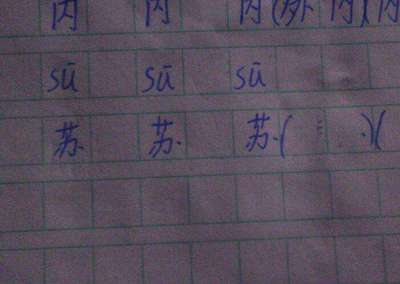 内 内 内(外 内)(内
sū sū sū
苏 苏 苏( )(